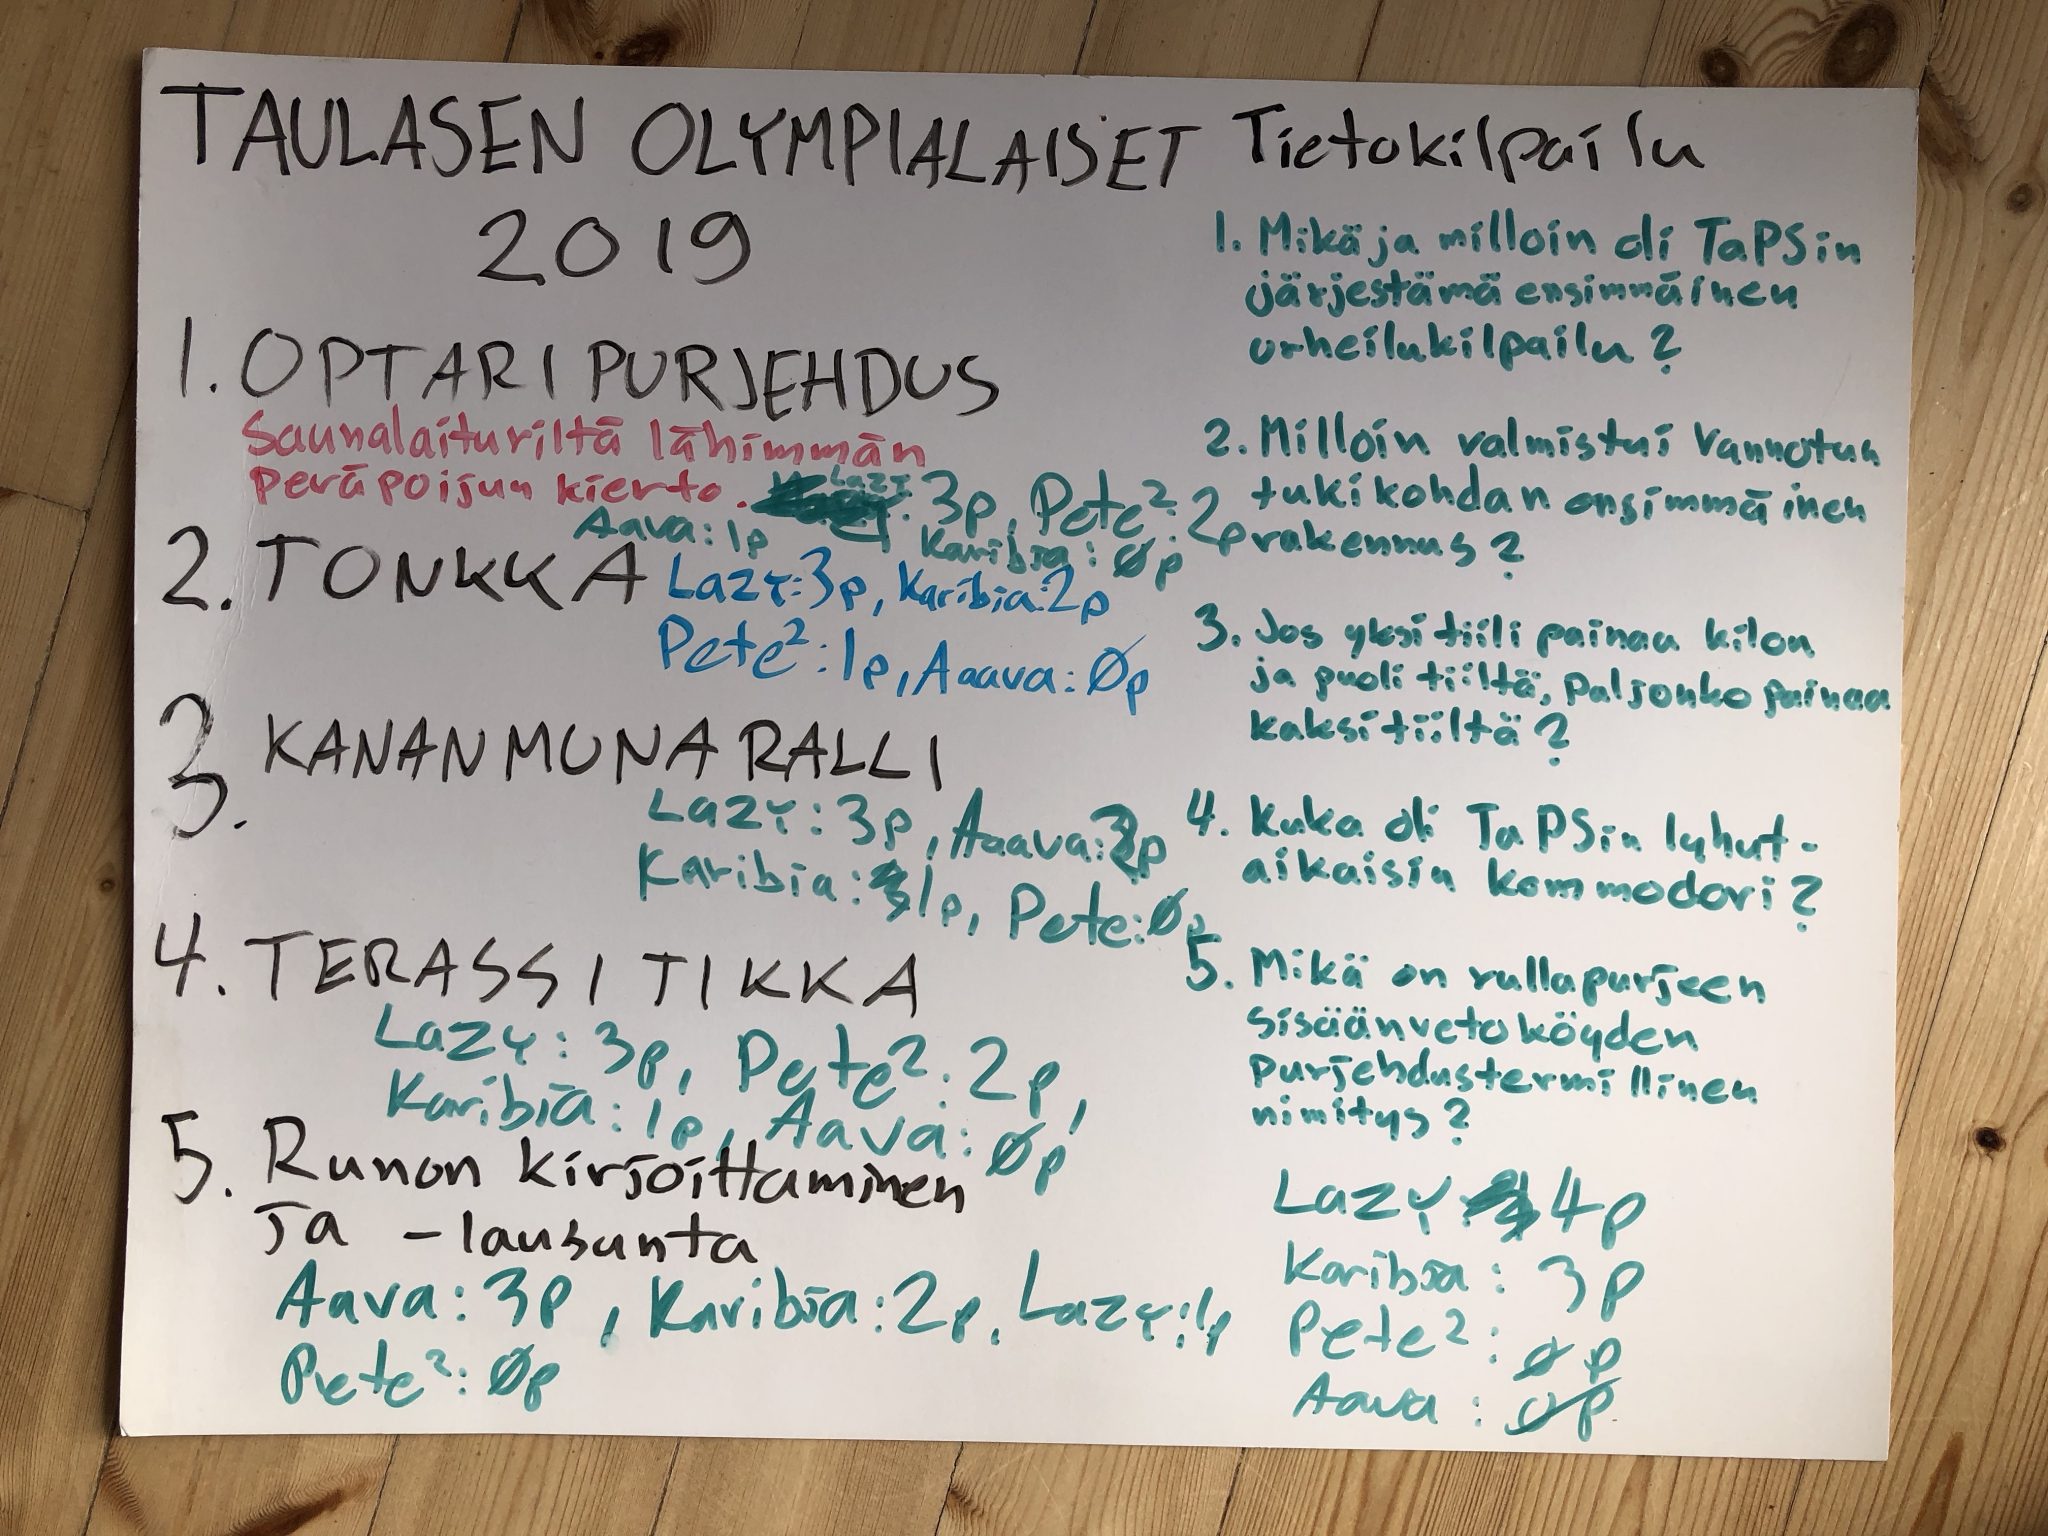 TAULASEN OLYMPIALAISET
2019
1. OPTARIPURJEHDUS
Saunalaiturilta lähimmän
peräpoijun kierto.
Lazy: 3p, Pete²: 2p
Aava: 1p Karibia: 0p
2. TONKKA Lazy: 3p, Karibia: 2p
Pete²: 1p, Aaava: 0p
3. KANANMUNARALLI
Lazy: 3p, Aaava: 2p
Karibia: 1p, Pete: 0p
4. TERASSITIKKA
Lazy: 3p, Pete²: 2p,
Karibia: 1p, Aava: 0p
5. Runon kirjoittaminen
ja -lausunta
Aava: 3p, Karibia: 2p, Lazy: 1p
Pete²: 0p
Tietokilpailu
1. Mikä ja milloin oli TaPSin
järjestämä ensimmäinen
urheilukilpailu?
2. Milloin valmistui Vannotun
tukikohdan ensimmäinen
rakennus?
3. Jos yksi tiili painaa kilon
ja puoli tiiltä, paljonko painaa
kaksi tiiltä?
4. Kuka oli TaPSin lyhut-
aikaisin kommodori?
5. Mikä on rullapurjeen
sisäänvetoköyden
purjehdustermillinen
nimitys?
Lazy 4p
Karibia: 3p
Pete²: 0p
Aava: 0p